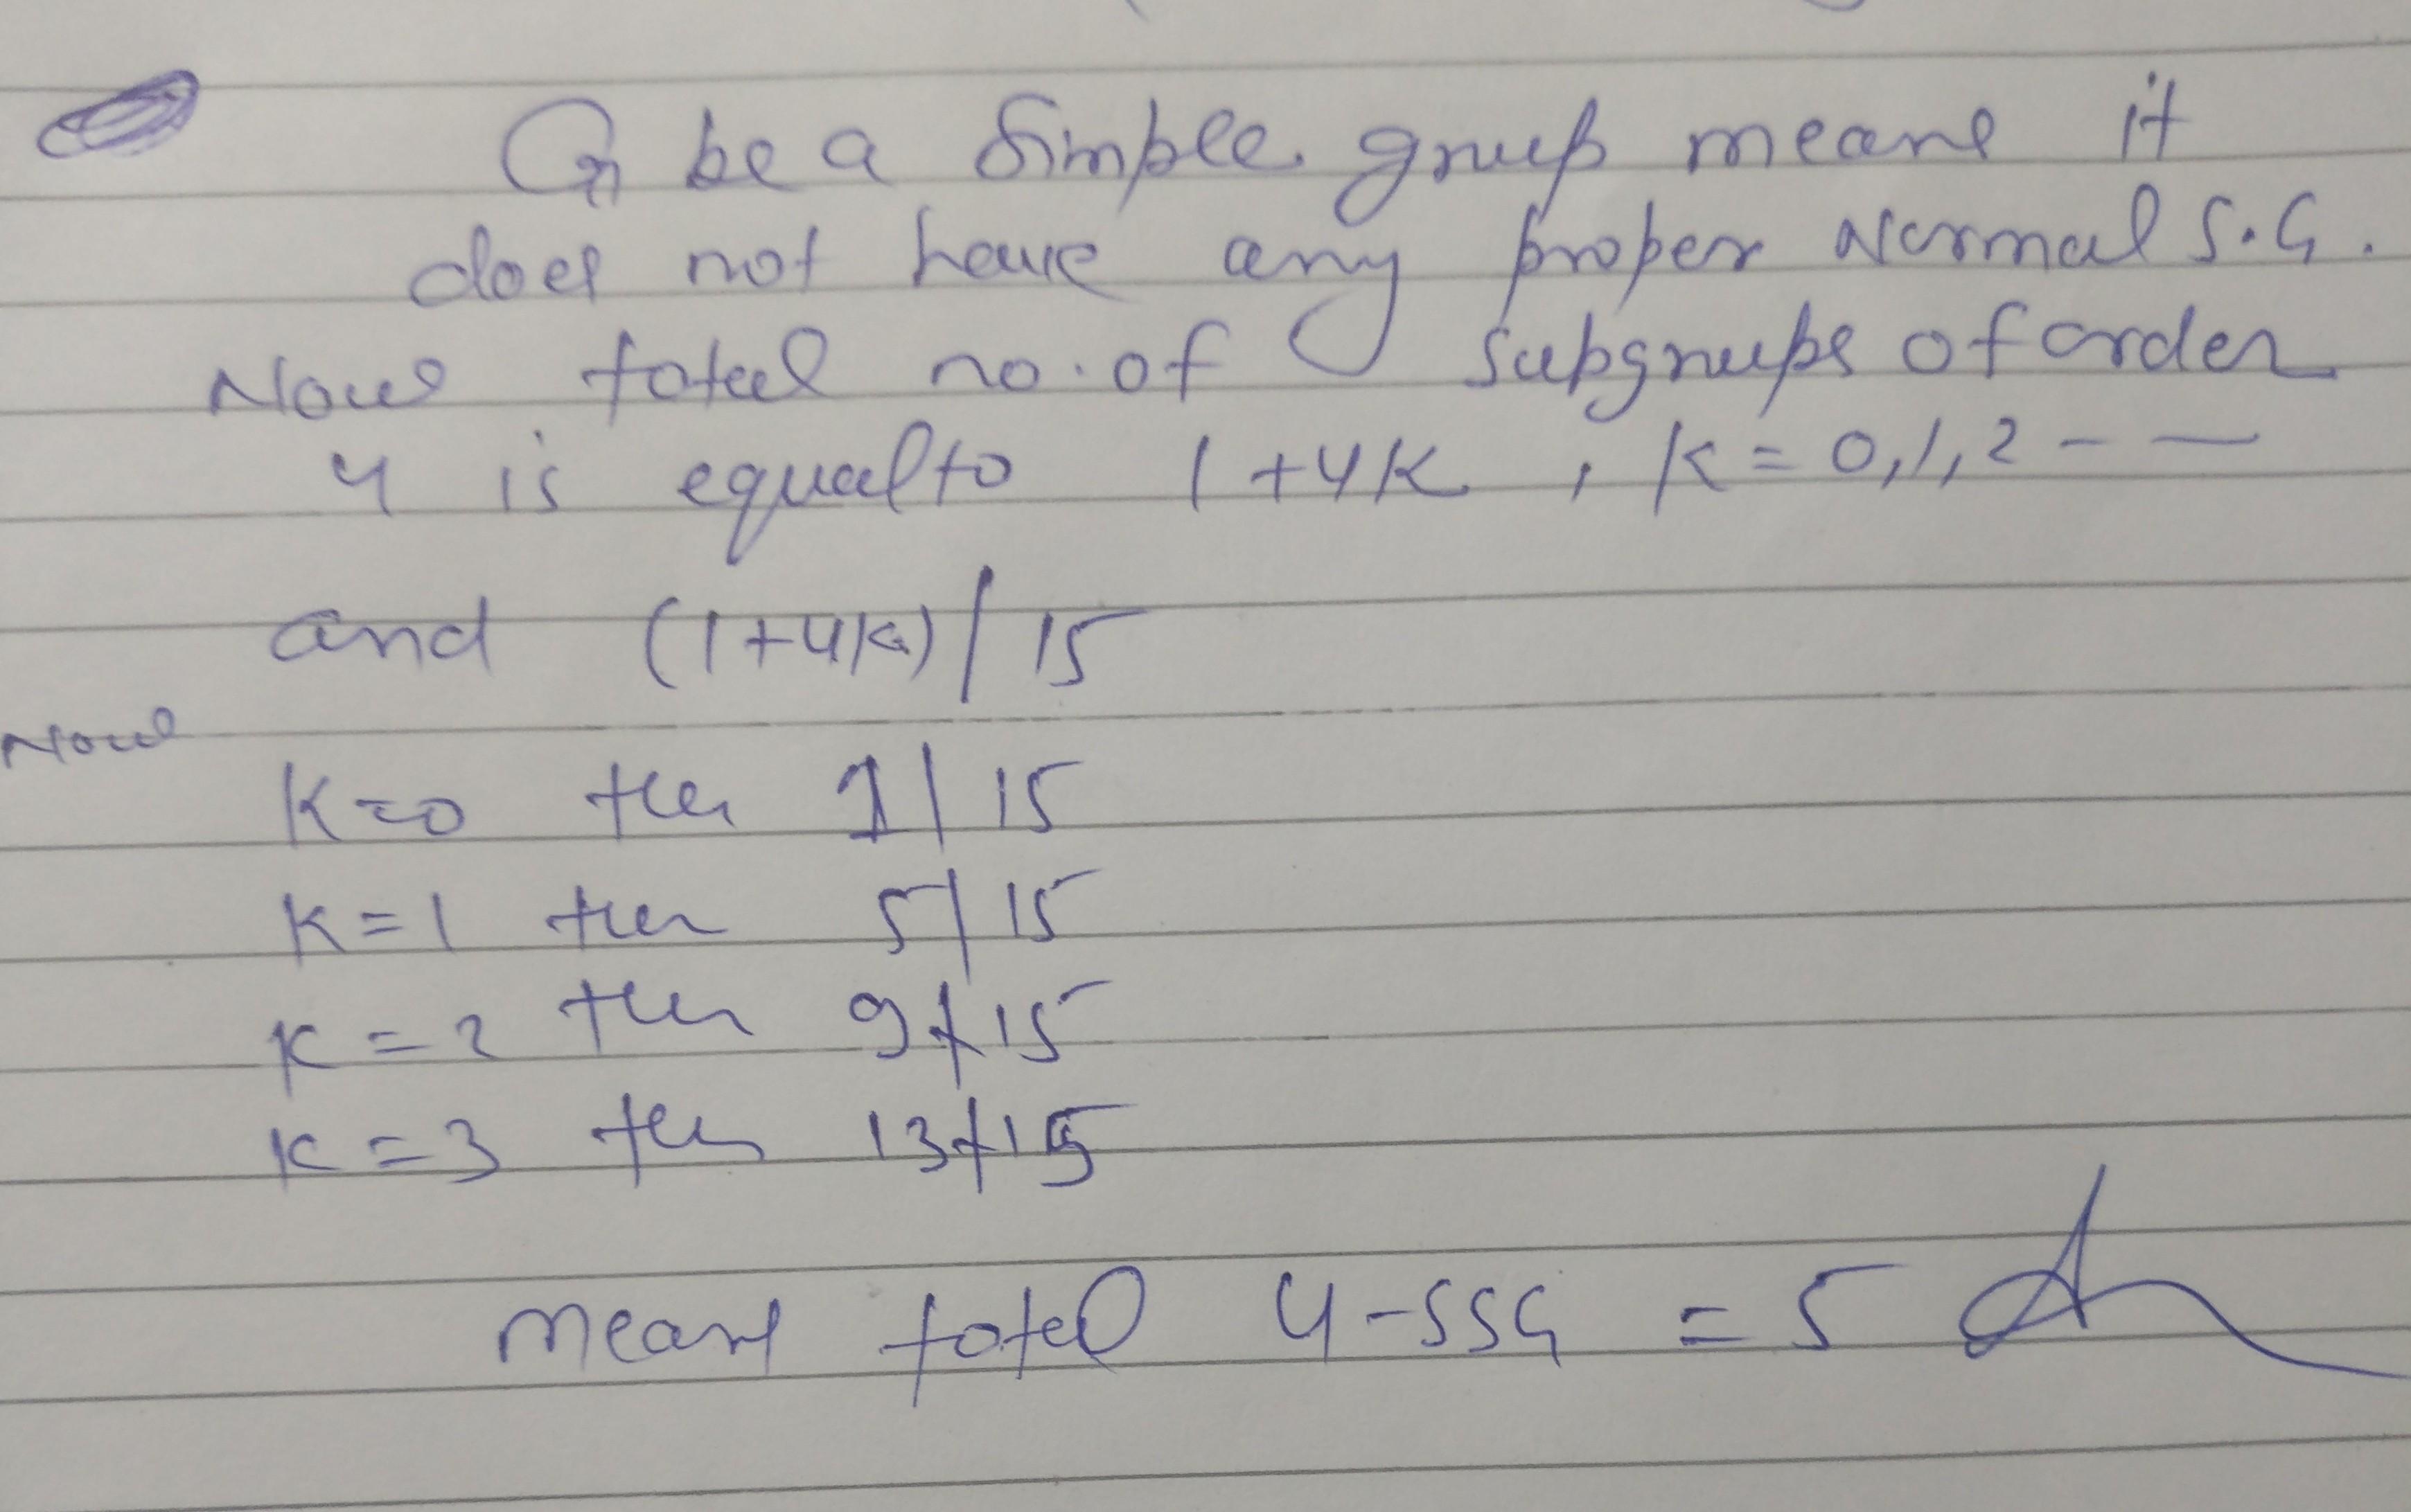 G be a simple group means it
does not have any proper Normal S.G.
Now total no. of subgroups of order
4 is equal to 1+4K, K=0,1,2 - —
and (1+4K)/15
Now
K=0 then 1|15
K=1 then 5|15
K=2 then 9∤15
K=3 then 13∤15
means total 4-SSG = 5